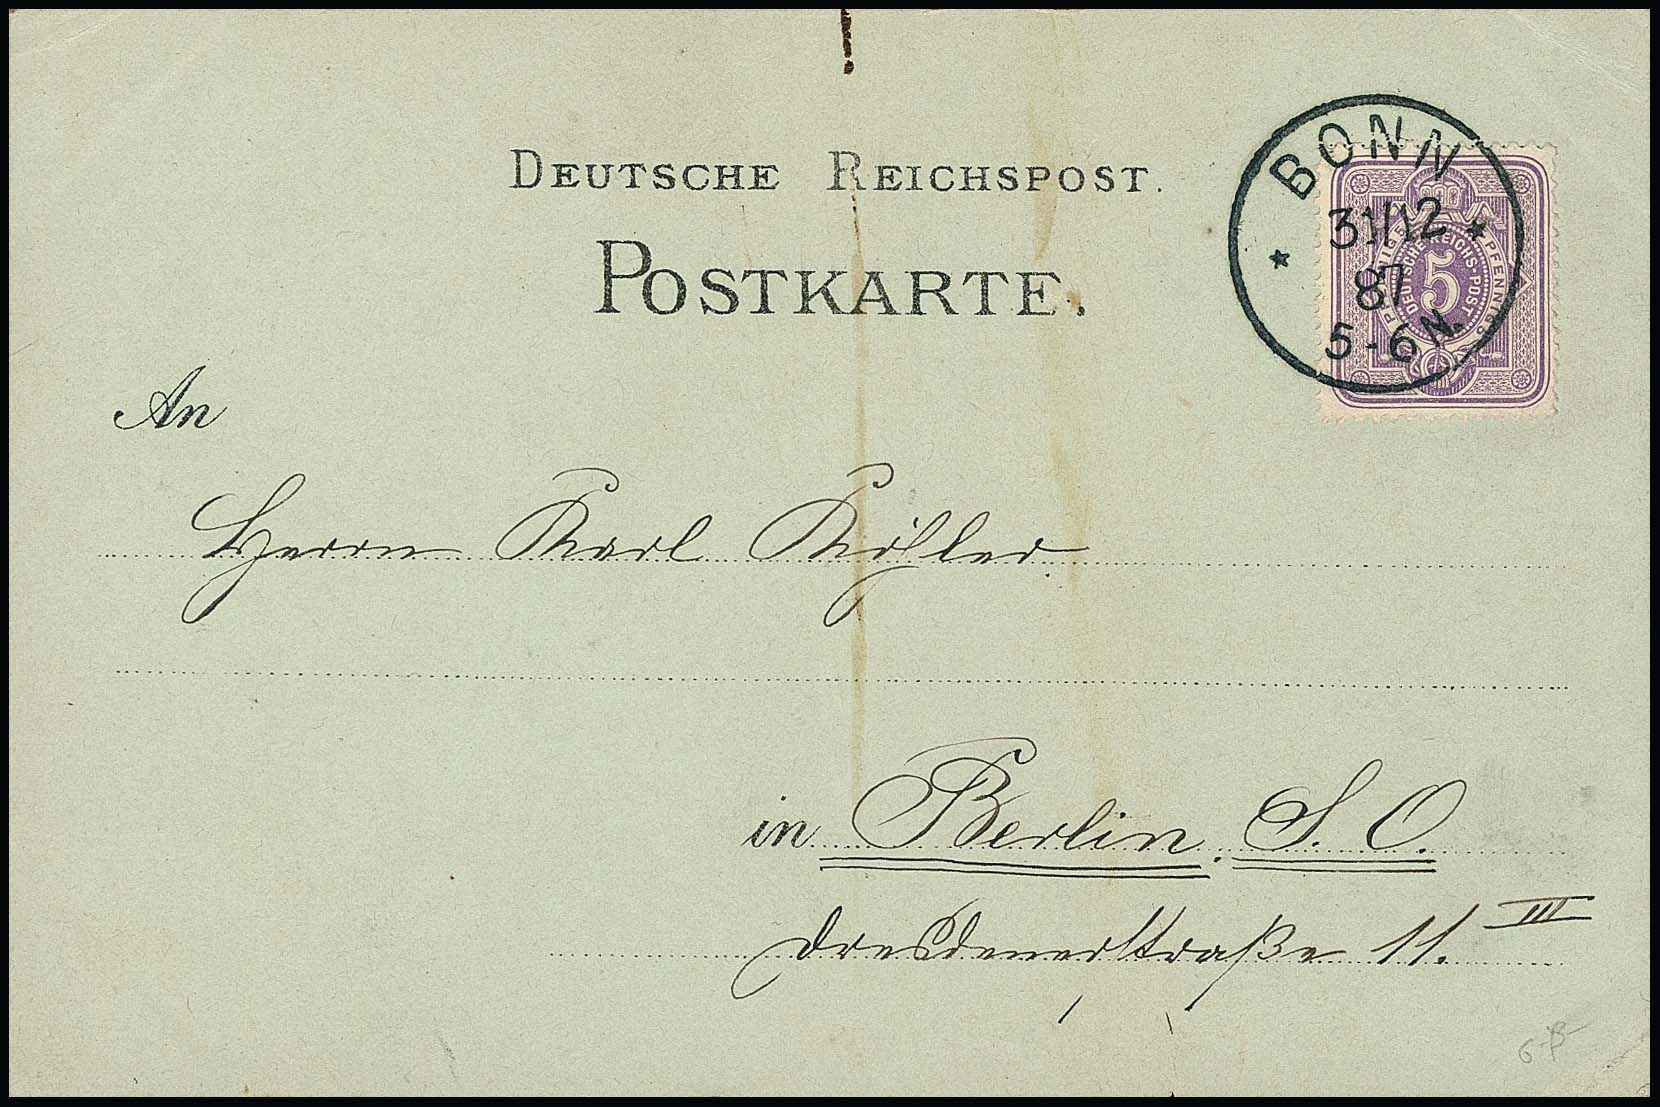 DEUTSCHE REICHSPOST.
POSTKARTE.
BONN
31/12
87
5-6 N.
DEUTSCHE REICHS-POST
5
An
Herrn Karl Köhler
in Berlin. S. O.
Dresdenerstraße 11. III